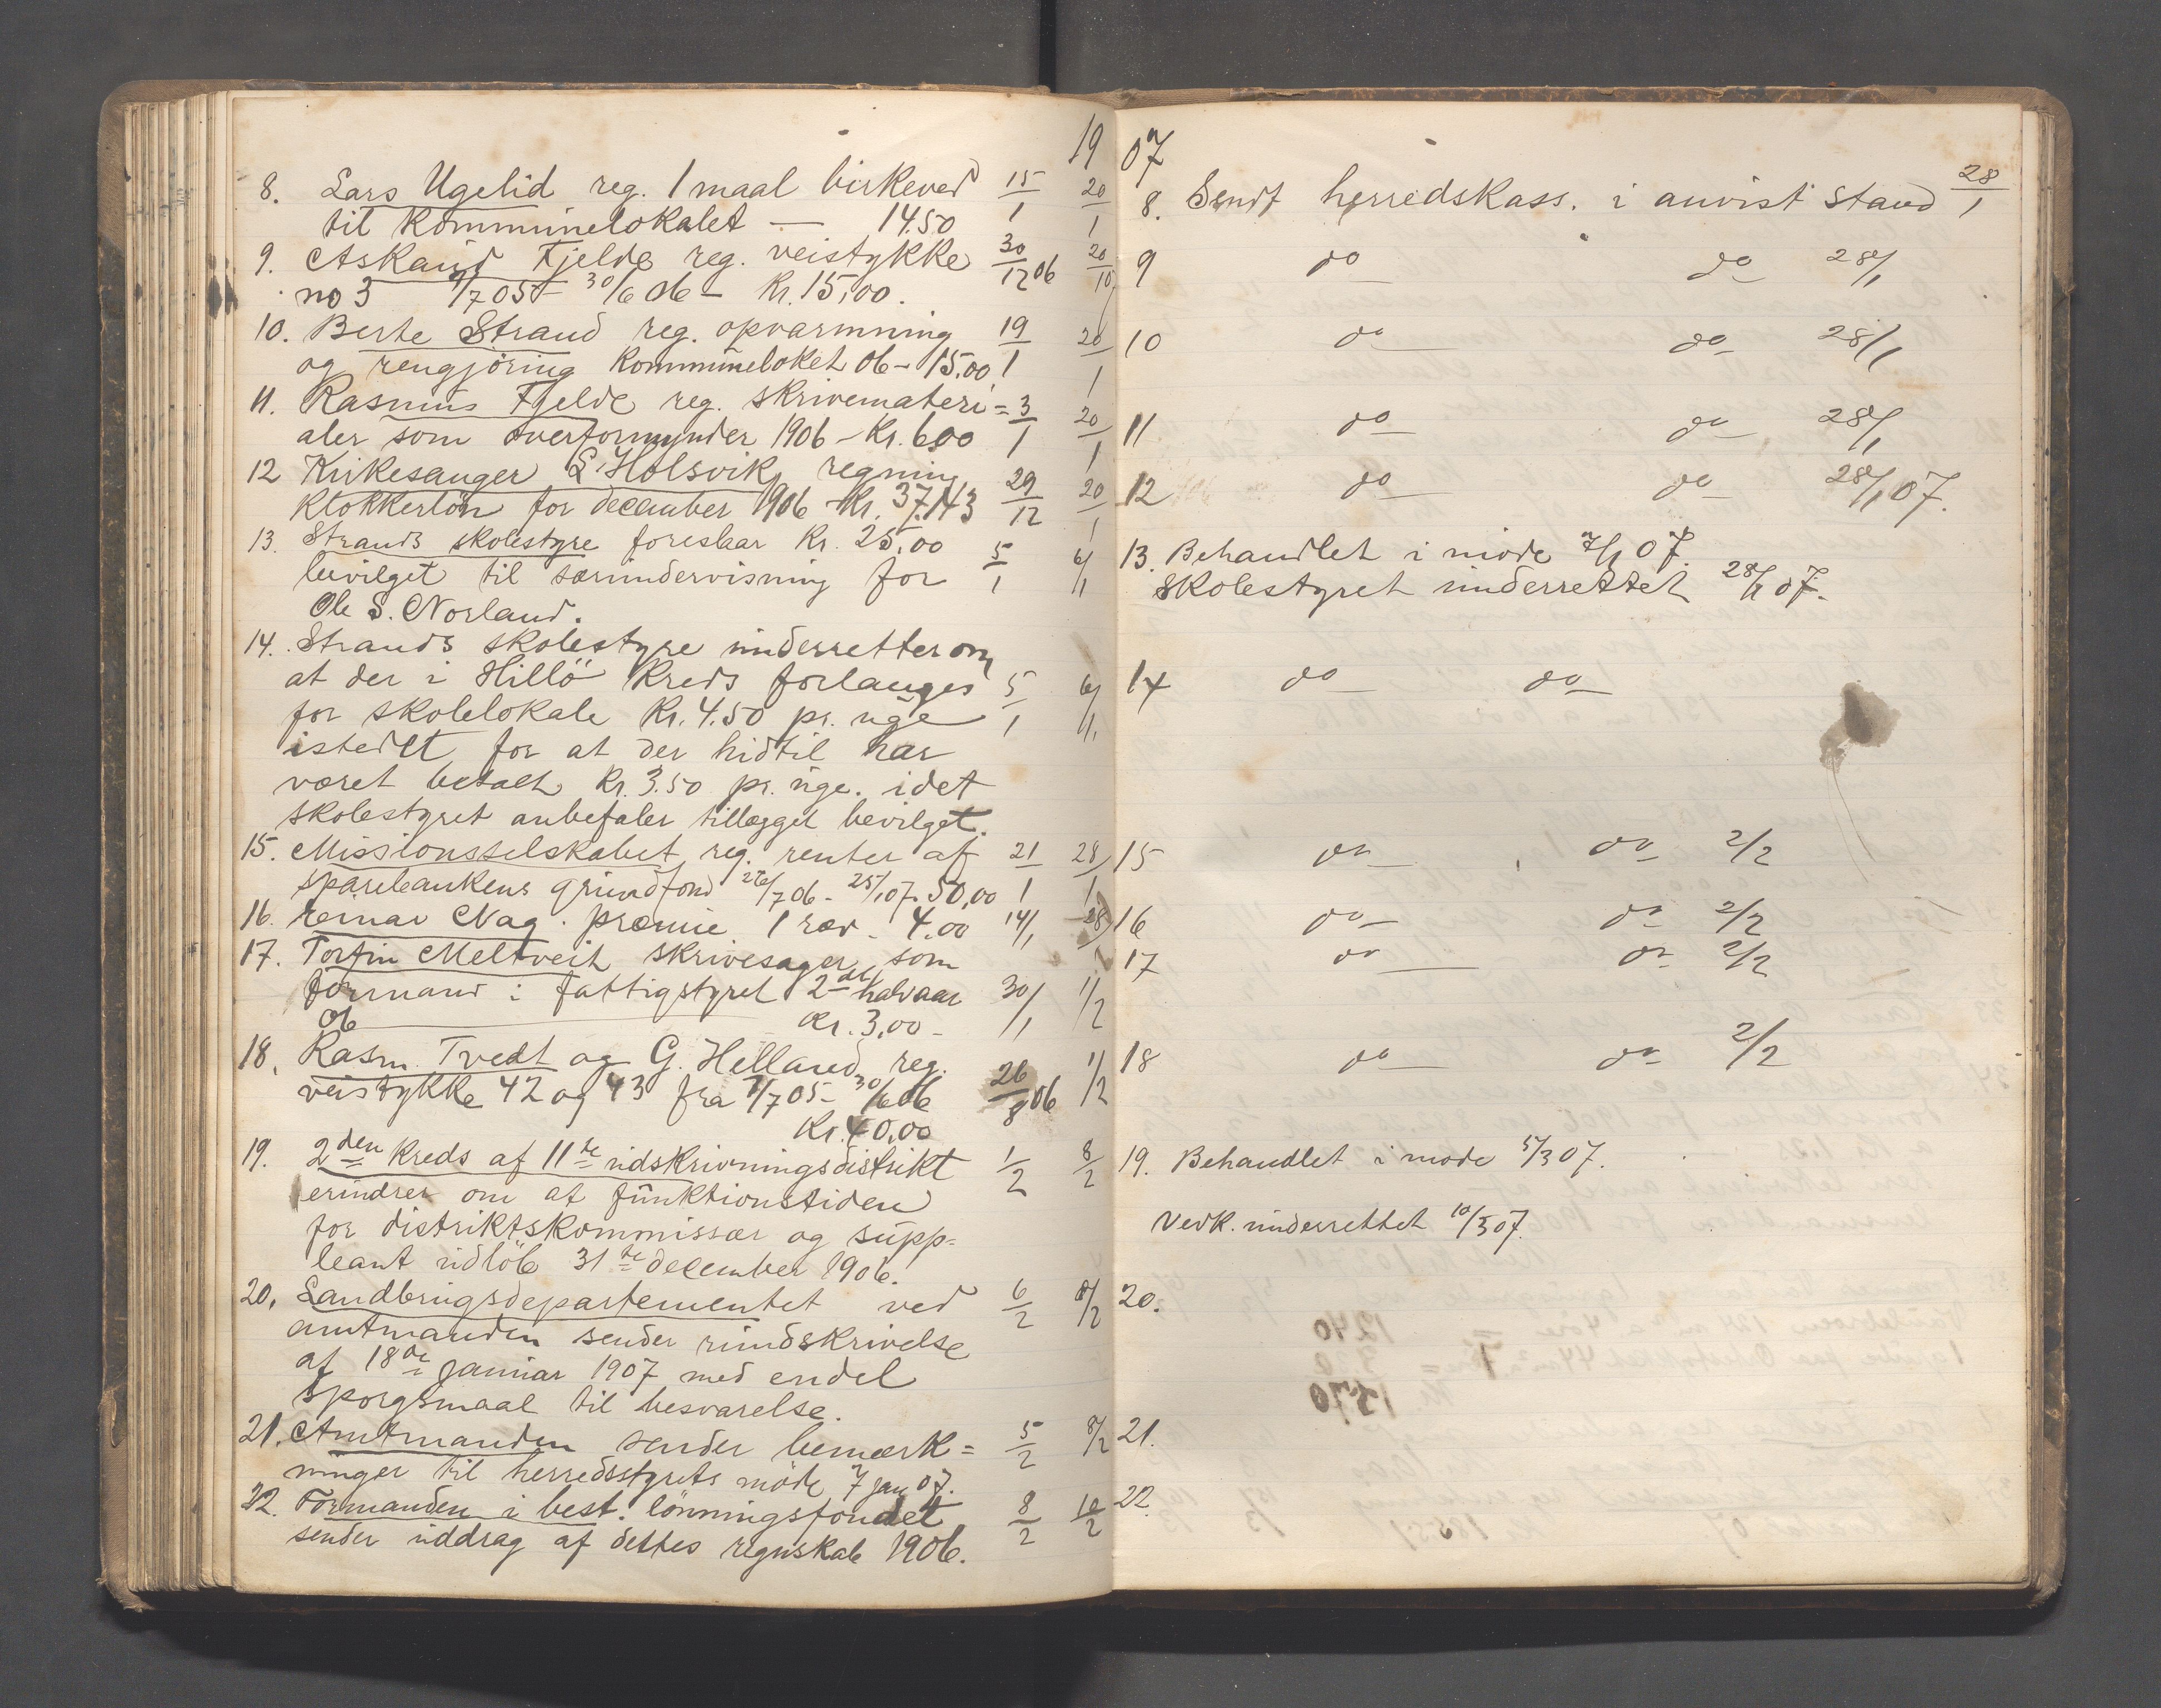 1907
8. Lars Ugelid reg. 1 maal birkeved 15/1 20/1
til kommunelokalet — 14.50
9. Askaut Fjelde reg. veistykke 30/12 06 20/10
no 3 1/7 05 - 30/6 06 - Kr. 15,00.
10. Berte Strand reg. opvarmning 19/1 20/1
og rengjöring kommuneloket 06 - 15.00
11. Rasmus Fjelde reg. skrivemateri= 3/1 20/1
aler som overformynder 1906 - Kr. 6,00
12 Kirkesanger L. Holsvik, regning 29/12 20/1
klokkerlön for december 1906 - Kr. 37,43
13. Strands skolestyre foreslaar Kr. 25,00 5/1 6/1
bevilget til særundervisning for
Ole S. Norland.
14. Strands skolestyre underretter om
at der i Hillö kreds forlanges 5/1 6/1
for skolelokale Kr. 4.50 pr. uge
istedet for at der hidtil har
været betalt Kr. 3.50 pr. uge. idet
skolestyret anbefaler tillægget bevilget.
15. Missionsselskabet, reg. renter af 21/1 28/1
sparebankens grundfond 26/7 06 - 25/1 07. 50,00
16. Reinar Nag. præmie 1 ræv - 4.00 14/1 28/1
17. Torfin Meltveit skrivesager som
formand i fattigstyret 2det halvaar 30/1 1/2
06 — Kr. 3,00 -
18. Rasm. Tvedt og G. Helland reg. 26/8 06 1/2
veistykke 42 og 43 fra 1/7 05 - 30/6 06
Kr. 40,00
19. 2den kreds af 11te udskrivningsdistrikt 1/2 8/2
erindrer om at funktionstiden
for distriktskommissær og supp=
leant udløb 31te december 1906.
20. Landbrugsdepartementet ved 6/2 8/2
amtmanden sender rundskrivelse
af 18de januar 1907 med endel
spørgsmaal til besvarelse.
21. Amtmanden sender bemærk= 5/2 8/2
ninger til herredsstyrets möde 7 jan 07.
22. Formanden i best. lönningsfondet 8/2 10/2
sender uddrag af dettes regnskab 1906.
8. Sendt herredskass. i anvist stand 28/1
9 do do 28/1
10 do do 28/1
11 do do 28/1
12 do do 28/1 07.
13. Behandlet i möde 7/1 07.
Skolestyret underrettet 28/1 07.
14 do do
15 do do 2/2
16 do do 2/2
17 do do 2/2
18 do do 2/2
19. Behandlet i møde 5/3 07.
Vedk. underrettet 10/3 07.
20.
21.
22.